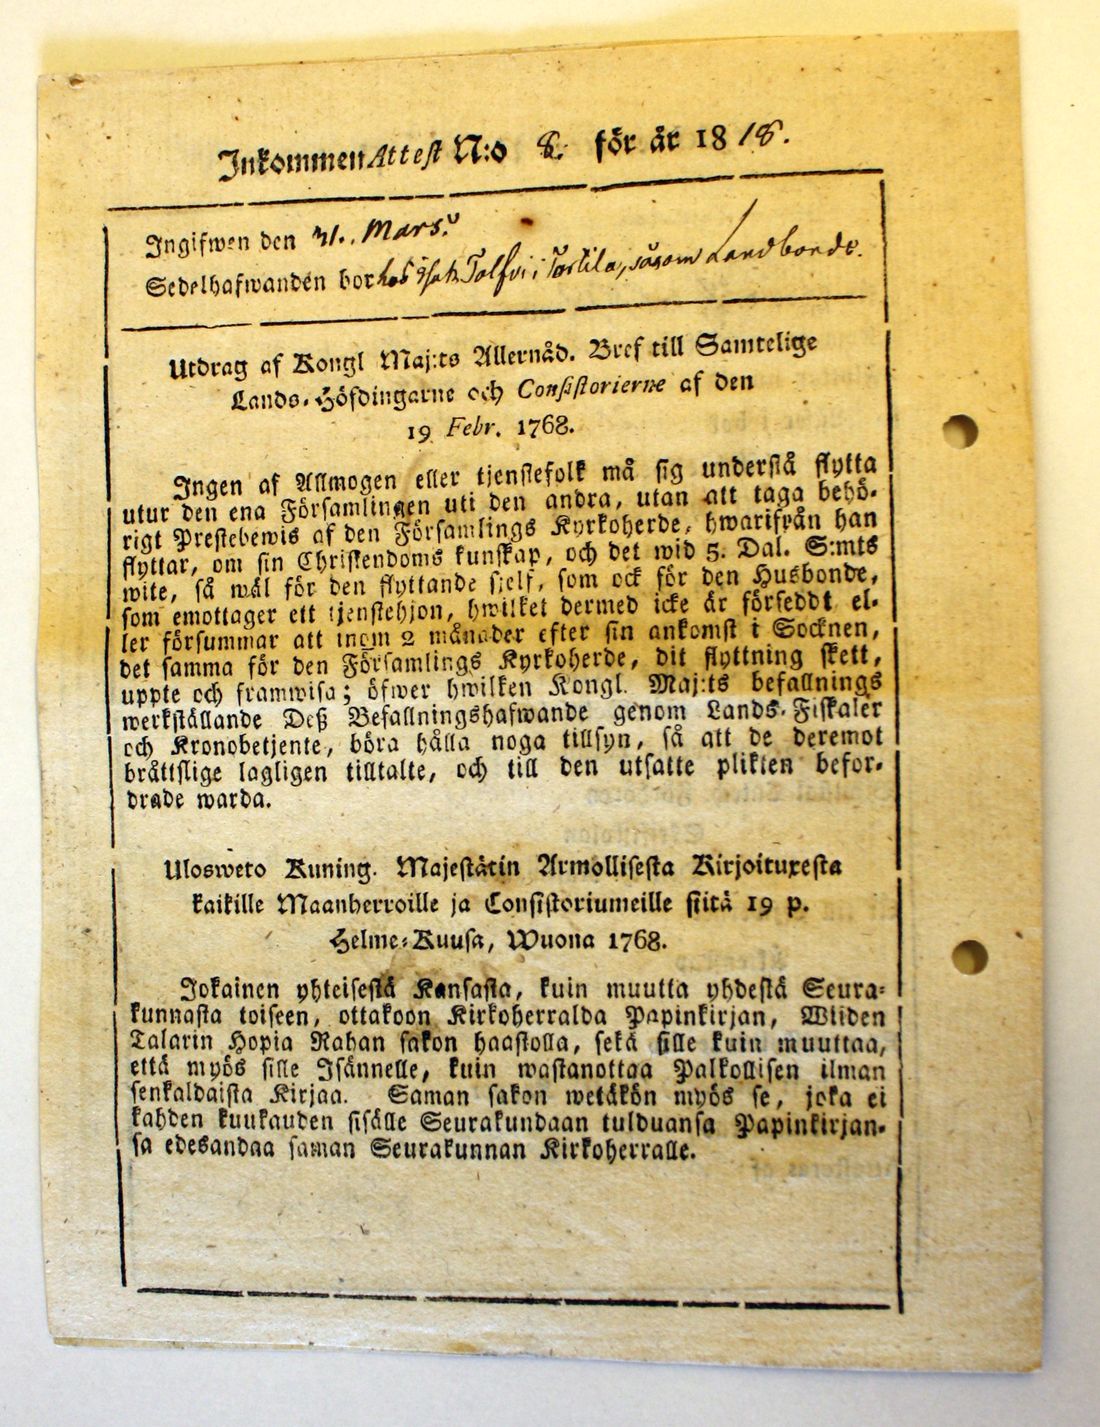 Inkommen Attest N:o 8. för år 1818.
Ingifwen den 31. Mars.
Sedelhafwanden bor hos Tolfvi i Torkila, såsom Landbonde.
Utdrag af Kongl Maj:ts Allernåd. Bref till Samtelige
Lands-Höfdingarne och Consistorierne af den
19 Febr. 1768.
Ingen af Allmogen eller tjenstefolk må sig understå flytta
utur den ena Församlingen uti den andra, utan att taga behö-
rigt Prestebewis af den Församlings Kyrkoherde, hwarifrån han
flyttar, om sin Christendoms kunskap, och det wid 5. Dal. S:mts
wite, så wäl för den flyttande sjelf, som ock för den Husbonde,
som emottager ett tjenstehjon, hwilket dermed icke är försedt el-
ler försummar att inom 2 månader efter sin ankomst i Socknen,
det samma för den Församlings Kyrkoherde, dit flyttning skett,
uppte och framwisa; öfwer hwilken Kongl. Maj:ts befallnings
werkställande Deß Befallningshafwande genom Lands-Fiskaler
och Kronobetjente, böra hålla noga tillsyn, så att de deremot
bråttslige lagligen tilltalte, och till den utsatte plikten befor-
drade warda.
Ulosweto Kuning. Majestätin Armollisesta Kirjoituxesta
kaikille Maanherroille ja Consistoriumeille siitä 19 p.
Helme-Kuusa, Wuona 1768.
Jokainen yhteisestä Kansasta, kuin muutta yhdestä Seura-
kunnasta toiseen, ottakoon Kirkoherralda Papinkirjan, Wiiden
Talarin Hopia Rahan sakon haastolla, sekä sille kuin muuttaa,
että myös sille Isännelle, kuin wastanottaa Palkollisen ilman
senkaldaista Kirjaa. Saman sakon wetäkön myös se, joka ei
kahden kuukauden sisälle Seurakundaan tulduansa Papinkirjan-
sa edesandaa saman Seurakunnan Kirkoherralle.